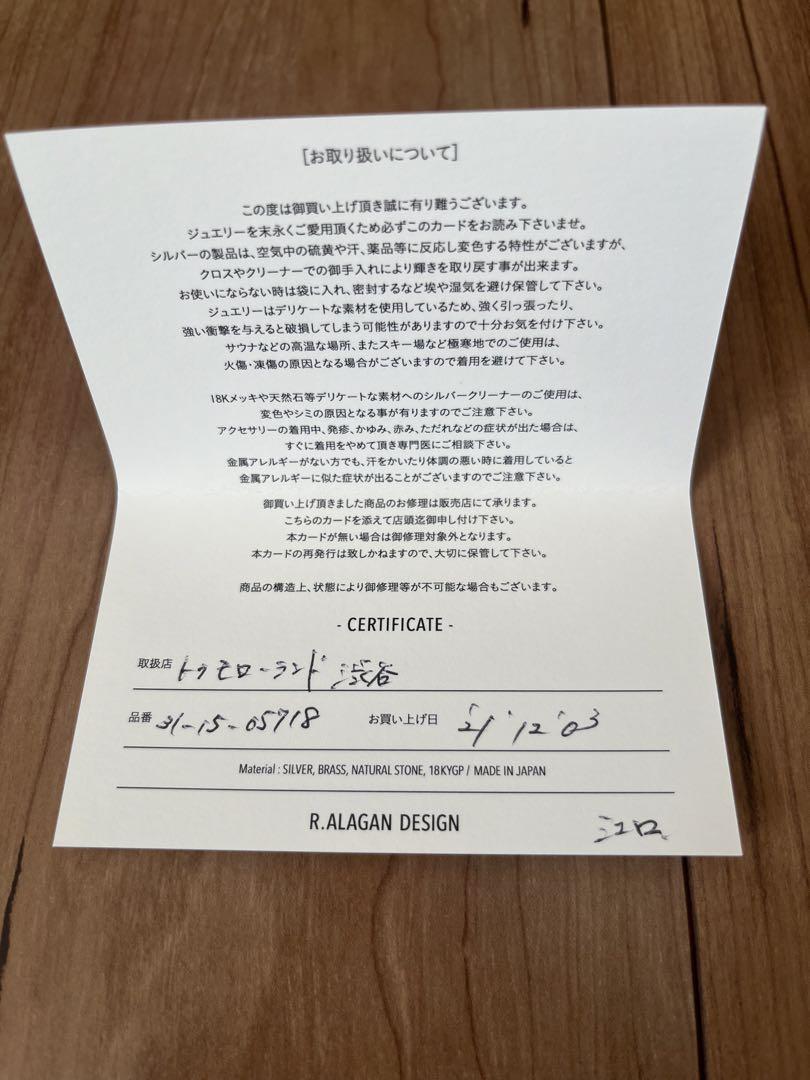 [お取り扱いについて]
この度は御買い上げ頂き誠に有り難うございます。
ジュエリーを末永くご愛用頂くため必ずこのカードをお読み下さいませ。
シルバーの製品は、空気中の硫黄や汗、薬品等に反応し変色する特性がございますが、
クロスやクリーナーでの御手入れにより輝きを取り戻す事が出来ます。
お使いにならない時は袋に入れ、密封するなど埃や湿気を避け保管して下さい。
ジュエリーはデリケートな素材を使用しているため、強く引っ張ったり、
強い衝撃を与えると破損してしまう可能性がありますので十分お気を付け下さい。
サウナなどの高温な場所、またスキー場など極寒地でのご使用は、
火傷・凍傷の原因となる場合がございますので着用を避けて下さい。
18Kメッキや天然石等デリケートな素材へのシルバークリーナーのご使用は、
変色やシミの原因となる事が有りますのでご注意下さい。
アクセサリーの着用中、発疹、かゆみ、赤み、ただれなどの症状が出た場合は、
すぐに着用をやめて頂き専門医にご相談下さい。
金属アレルギーがない方でも、汗をかいたり体調の悪い時に着用していると
金属アレルギーに似た症状が出ることがございますのでご注意下さい。
御買い上げ頂きました商品のお修理は販売店にて承ります。
こちらのカードを添えて店頭迄御申し付け下さい。
本カードが無い場合は御修理対象外となります。
本カードの再発行は致しかねますので、大切に保管して下さい。
商品の構造上、状態により御修理等が不可能な場合もございます。
- CERTIFICATE -
取扱店 トゥモローランド 渋谷
品番 31-15-05718 お買い上げ日 '21 '12 '03
Material : SILVER, BRASS, NATURAL STONE, 18KYGP / MADE IN JAPAN
R.ALAGAN DESIGN 江口